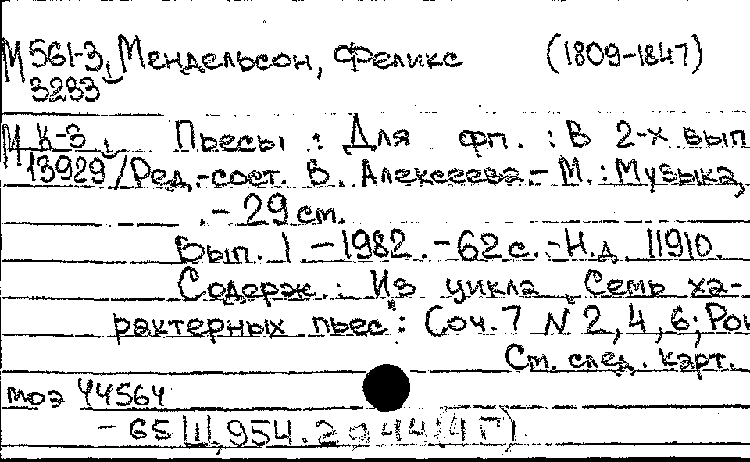 М 561-3, Мендельсон, Феликс (1809-1847)
3233
М К-3, Пьесы : Для фп. : В 2-х вып
13929 /Ред.-сост. В. Алексеева.- М. : Музыка,
.- 29 см.
Вып. 1.-1982.-62 с.-Н.д. 11910.
Содерж.: Из цикла „Семь ха-
рактерных пьес": Соч. 7 N 2, 4, 6;
См. след. карт.
44564